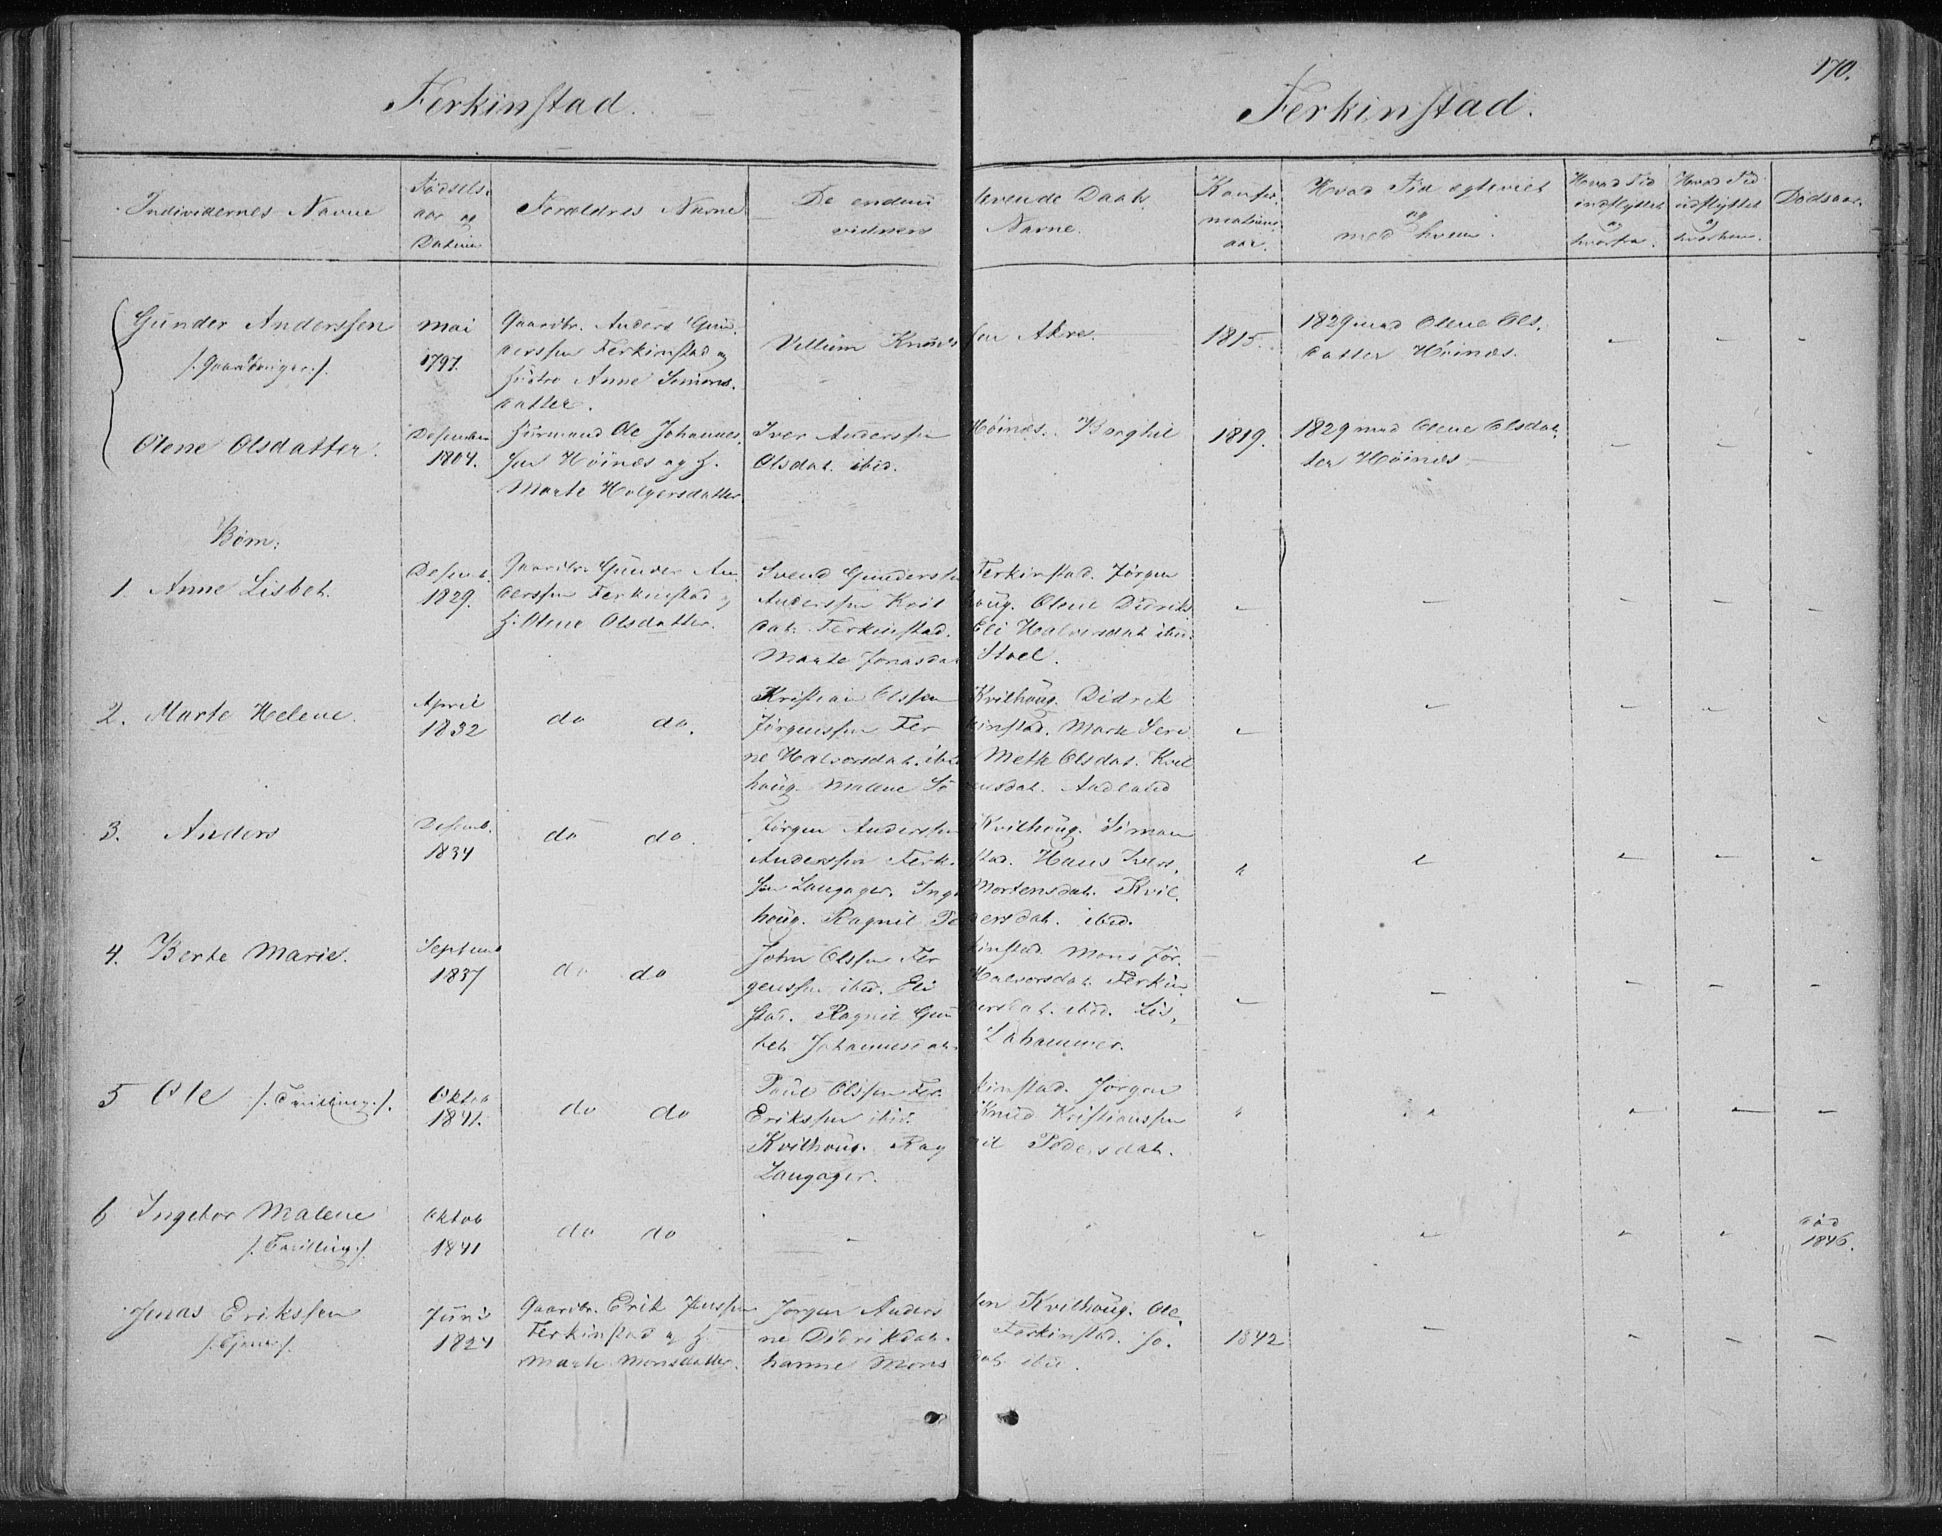 170.
Ferkinstad. Ferkinstad.
Individernes Navne
Fødsels-
aar og
Datum
Forældres Navne
De endnu levende Daab-
vidners Navne.
Konfir-
mations-
aar.
Hvad Tid egteviet
og
med hvem.
Hvad Tid
indflyttet
og
hvorfra.
Hvad Tid
udflyttet
og
hvorhen.
Dødsaar.
Gunder Anderssen
/: Gaardbruger :/.
Mai
1797.
Gaardbr. Anders Gun-
derssen Ferkinstad og
Hustro Anne Simons-
datter.
Villum Knudssen Akre.
1815.
1829 med Olene Ols-
datter Høinæs.
Olene Olsdatter.
Desember
1804.
Huusmand Ole Johannes-
sen Høinæs og H.
Marte Holgersdatter
Iver Anderssen Høinæs. Borghil
Olsdat. ibid.
1819.
1829 med Olene Olsdat-
ter Høinæs
Børn:
1. Anne Lisbet.
Desemb.
1829.
Gaardbr. Gunder An-
derssen Ferkinstad og
H. Olene Olsdatter.
Svend Gunderssen Ferkinstad. Jørgen
Anderssen Kvilhoug. Olene Didriks
dat. Ferkinstad. Eli Halvorsdat ibid.
Marte Jonasdat Stoel.
2. Marte Helene.
April
1832
do do.
Kristian Olssen Kvilhoug. Didrik
Jørgenssen Ferkinstad. Marte Seri
ne Halvorsdat. ibid Mette Olsdat. Kvil
houg. Malene Sørensdat. Aadland
3. Anders
Desemb.
1834
do do.
Jørgen Anderssen Kvilhoug. Simon
Anderssen Ferk.stad. Hans Ivers-
sen Langager. Inge Mortensdat. Kvil-
houg. Ragnil Pedersdat. ibid.
4. Berte Marie.
Septemb
1837
do do
John Olssen Ferkinstad. Mons Jør-
genssen ibid. Eli Halvorsdat. Ferkin-
stad. Ragnil Gundersdat. ibid. Lis-
bet Johannesdat. Lahammer.
5 Ole /: Tvilling :/.
Oktob
1841.
do do
Poul Olssen Ferkinstad. Jørgen
Erikssen ibid. Knud Kristianssen
Kvilhoug. Ragnil Pedersdat.
Langager.
6 Ingebor Malene
/: Tvilling :/.
Oktob
1841
do do
død
1846.
Jonas Erikssen
/: Tjener :/.
Juni
1824
Gaardbr. Erik Jonssen
Ferkinstad og H.
Marte Monsdatter.
Jørgen Anderssen Kvilhoug. Ole-
ne Didrikdat. Ferkinstad. Jo-
hanne Monsdat ibid.
1842